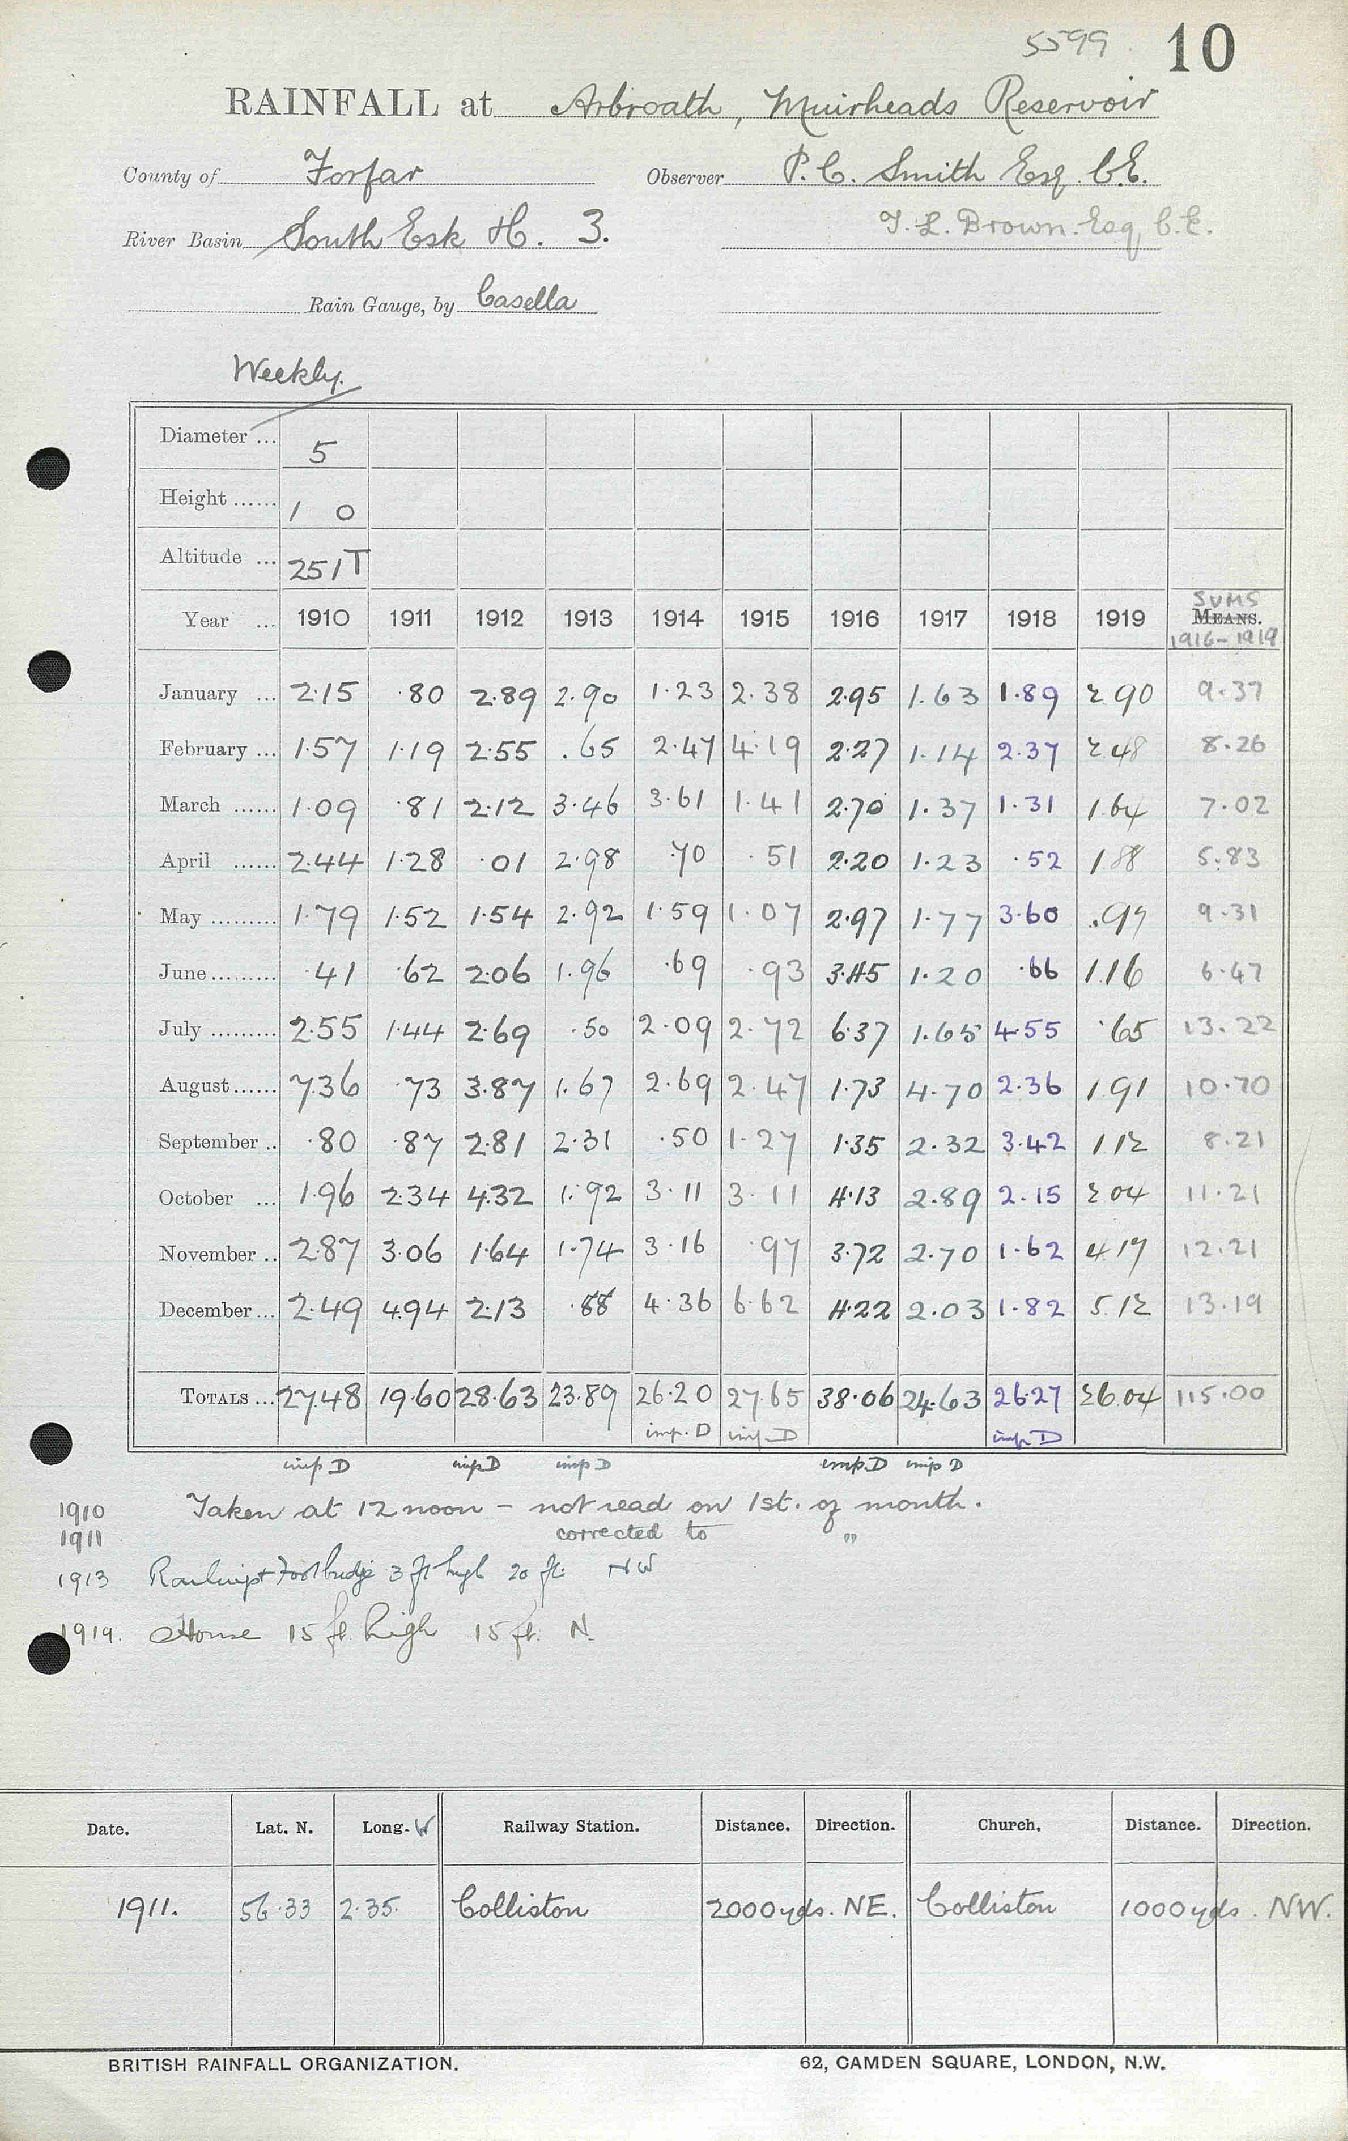 5599 10
RAINFALL at Arbroath, Muirheads Reservoir
County of Forfar Observer P. C. Smith Esq. C.E.
River Basin South Esk H. 3. T. L. Brown. Esq. C.E.
Rain Gauge, by Casella
Weekly.
Diameter ... 5
Height ...... 1 0
Altitude ... 251T
Year ... 1910 1911 1912 1913 1914 1915 1916 1917 1918 1919 SUMS MEANS. 1916-1919
January ... 2.15 .80 2.89 2.90 1.23 2.38 2.95 1.63 1.89 2 90 9.37
February ... 1.57 1.19 2.55 .65 2.47 4.19 2.27 1.14 2.37 2 48 8.26
March ...... 1.09 .81 2.12 3.46 3.61 1.41 2.70 1.37 1.31 1.64 7.02
April ...... 2.44 1.28 .01 2.98 .70 .51 2.20 1.23 .52 1 88 5.83
May ......... 1.79 1.52 1.54 2.92 1.59 1.07 2.97 1.77 3.60 .97 9.31
June ......... .41 .62 2.06 1.96 .69 .93 3.45 1.20 .66 1.16 6.47
July ......... 2.55 1.44 2.69 .50 2.09 2.72 6.37 1.65 4.55 .65 13.22
August ...... 7.36 .73 3.87 1.67 2.69 2.47 1.73 4.70 2.36 1 91 10.70
September .. .80 .87 2.81 2.31 .50 1.27 1.35 2.32 3.42 1 12 8.21
October ... 1.96 2.34 4.32 1.92 3.11 3.11 4.13 2.89 2.15 2 04 11.21
November .. 2.87 3.06 1.64 1.74 3.16 .97 3.72 2.70 1.62 4 17 12.21
December ... 2.49 4.94 2.13 .88 4.36 6.62 4.22 2.03 1.82 5.12 13.19
TOTALS ... 27.48 19.60 28.63 23.89 26.20 27.65 38.06 24.63 26.27 26.04 115.00
imp. D imp. D imp. D
imp D imp D imp D imp. D imp D
1910 Taken at 12 noon - not read on 1st. of month.
1911 corrected to "
1913 footbridge 3 ft high 20 ft. NW
1919. House 15 ft. high 15 ft. N.
Date. Lat. N. Long. W Railway Station. Distance. Direction. Church. Distance. Direction.
1911. 56.33 2.35. Colliston 2000 yds. NE. Colliston 1000 yds. NW.
BRITISH RAINFALL ORGANIZATION. 62, CAMDEN SQUARE, LONDON, N.W.